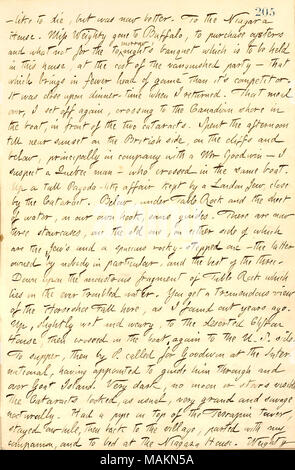 like to die, but was now better. To the Niagara
House. Miss Weighty gone to Buffalo, to purchase oysters
and what not for the to-morrow night's banquet which is to be held
in this house, at the cost of the vanquished party — that
which brings in fewer head of game than it's competitor.
It was close upon dinner-time when I returned. That meal
over, I set off again, crossing to the Canadian shore in
the boat, in front of the two cataracts. Spent the afternoon
till near sunset on the British side, on the cliffs and
below, principally in company with a Mr Goodwin — I
suspect a Quebec man — who crossed in the same boat.
Up a tall Pagoda-like affair kept by a London Jew, close
by the Cataract. Below, under Table Rock and the sheet
of water, in our own hook, sans guides. There are now
three staircases, on the old one, on either side of which
are the Jew's and a spacious rocky-stepped one — the latter
owned by nobody in particular, and the best of the three.
Down upon the monstrous fragment of Table Rock which
lies in the ever troubled water. You get a tremendous view
of the Horseshoe Fall here, as I found out years ago.
Up, slightly wet and weary, to the deserted Clifton
House, then crossed in the boat, again to the U. S. side.
To supper, then by P. called for Goodwin at the Inter
national, having appointed to guide him through and
over Goat Island. Very dark, no moon or stars visible
the Cataracts looked, as usual, very grand and savage
naturally. Had a pipe on top of the Terrapin tower,
stayed awhile, then back to the village, parted with my
companion, and to bed at the Niagara House. Weighty
alamy
Image ID: MAKN5A
www.alamy.com